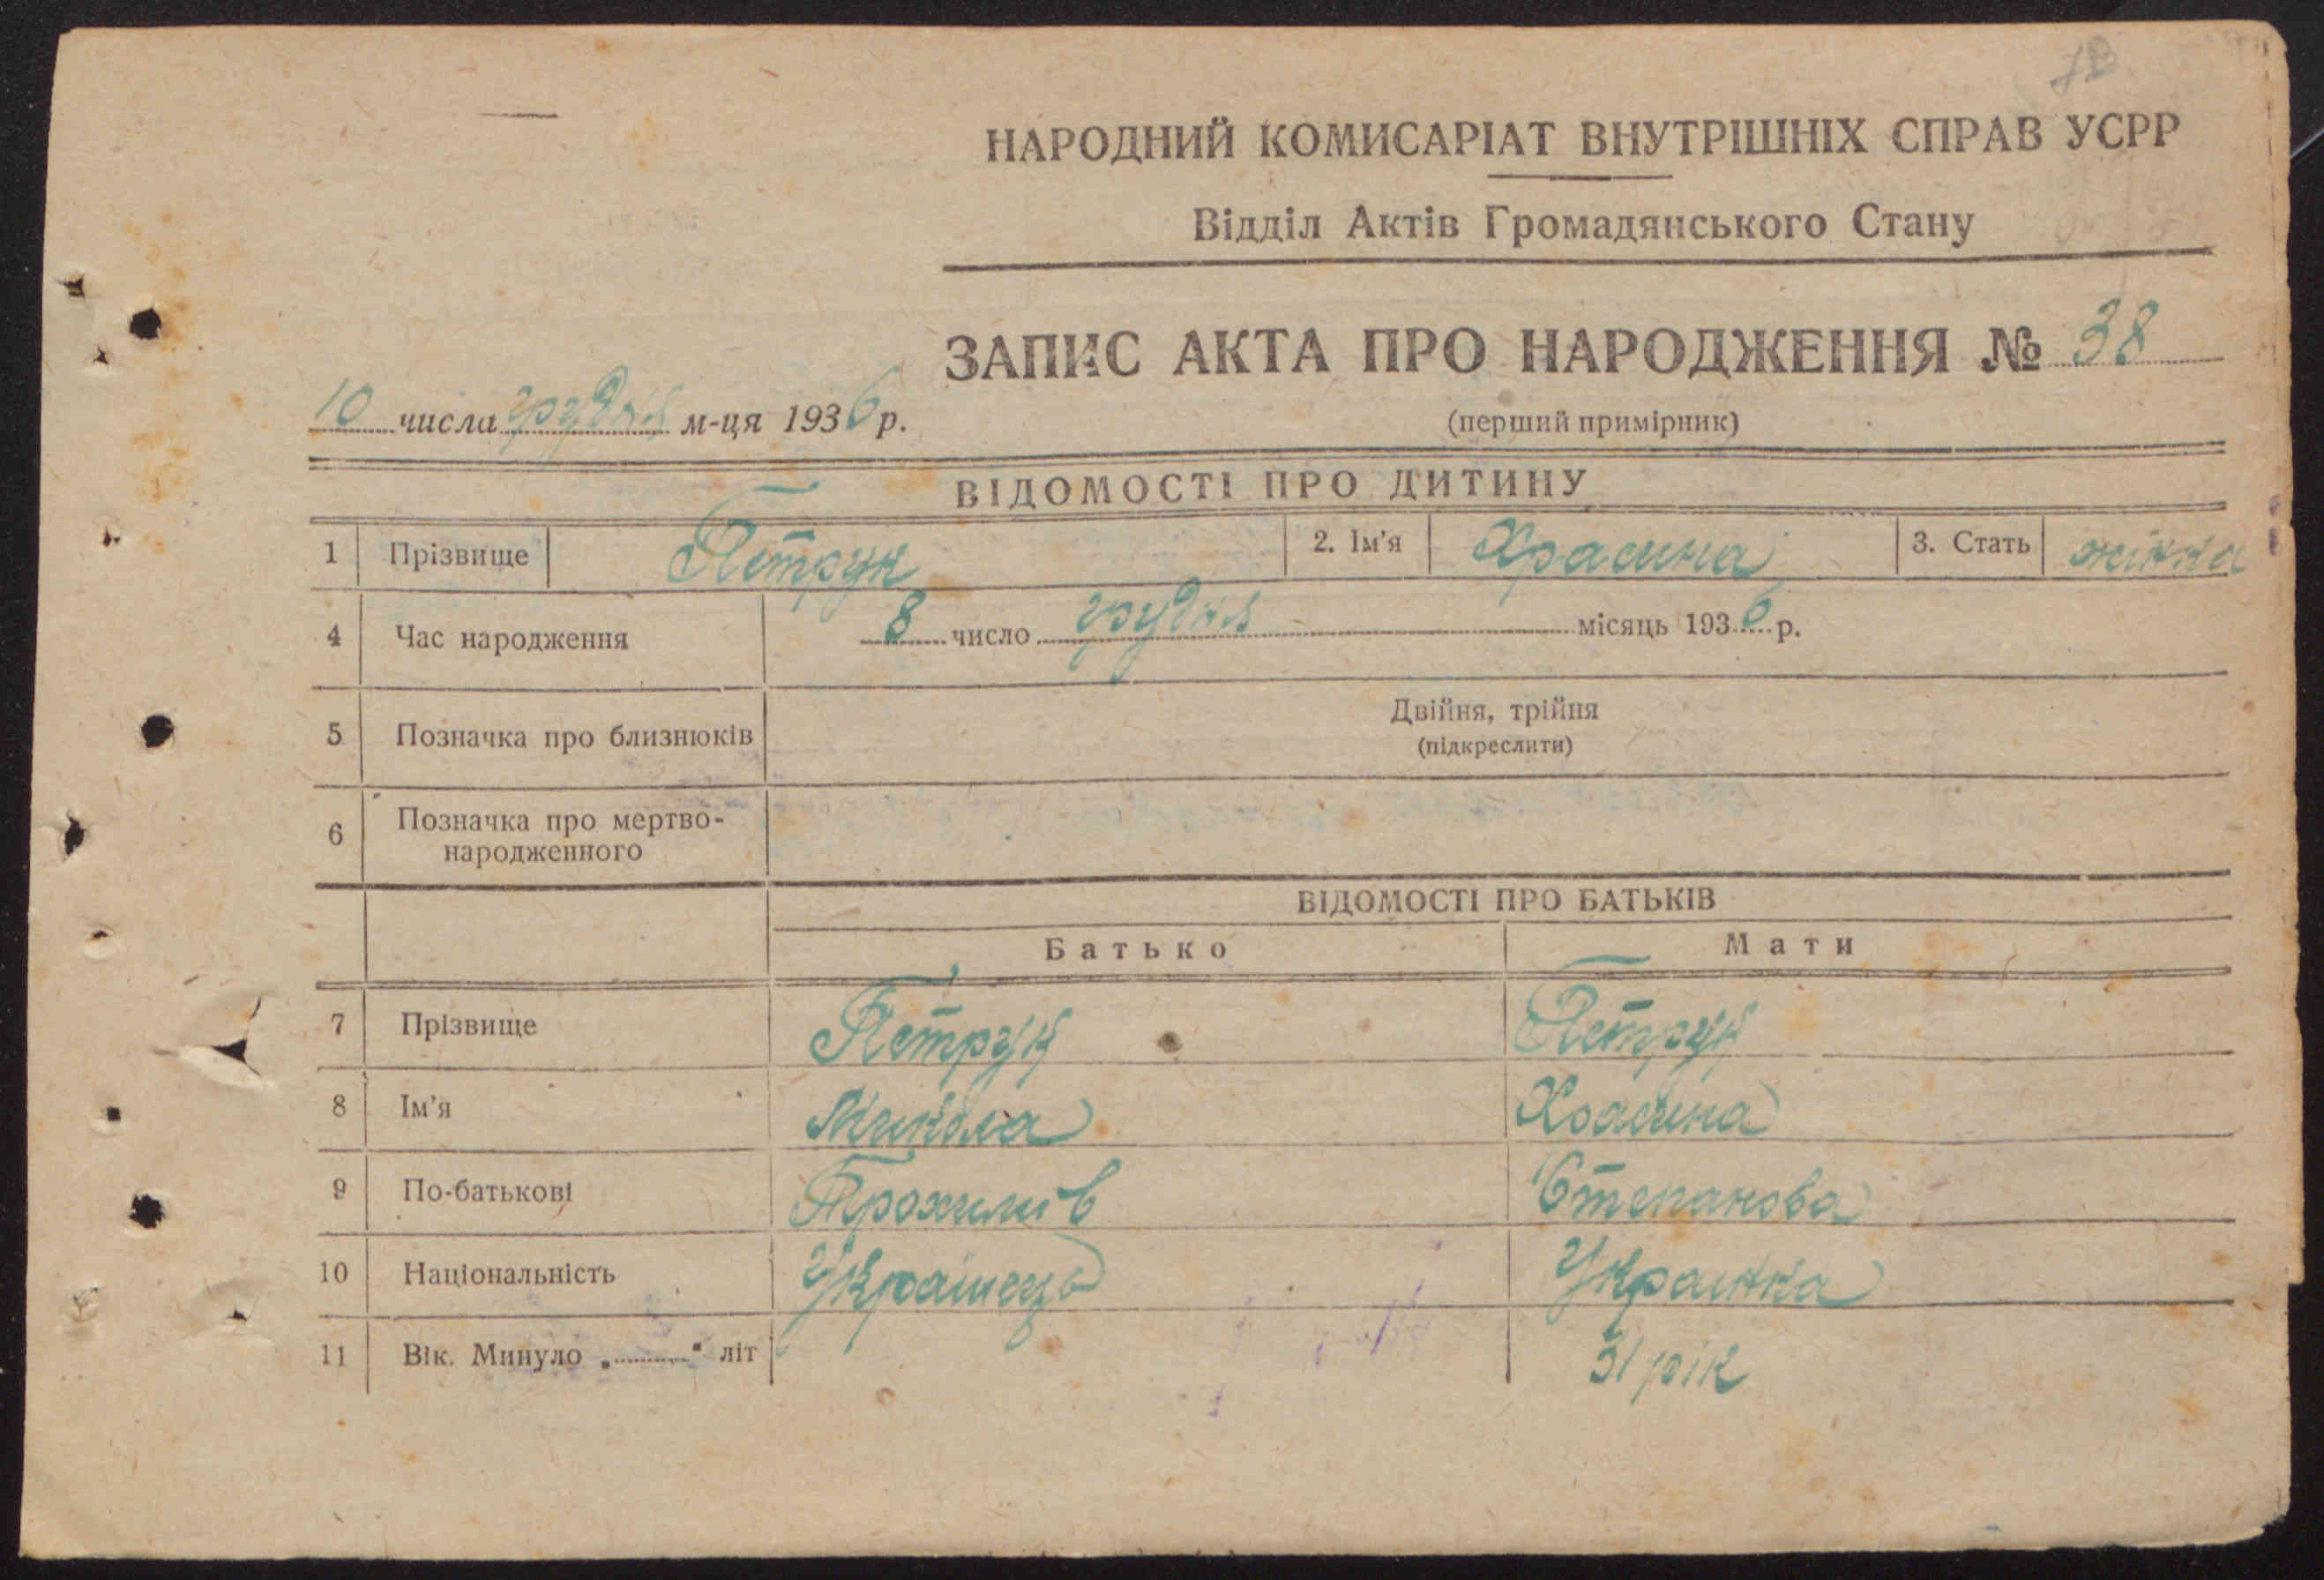 НАРОДНИЙ КОМИСАРІАТ ВНУТРІШНІХ СПРАВ УСРР
Відділ Актів Громадянського Стану
ЗАПИС АКТА ПРО НАРОДЖЕННЯ № 38
10 числа грудня м-ця 1936 р.
(перший примірник)
ВІДОМОСТІ ПРО ДИТИНУ
1 Прізвище Петрук 2. Ім'я Храсина 3. Стать жінка
4 Час народження 8 число грудня місяць 1936 р.
5 Позначка про близнюків Двійня, трійня
(підкреслити)
6 Позначка про мертво-
народженного
ВІДОМОСТІ ПРО БАТЬКІВ
Батько Мати
7 Прізвище Петрук Петрук
8 Ім'я Микола Храсина
9 По-батькові Трохимів Степанова
10 Національність Українець Українка
11 Вік. Минуло „ " літ 31 рік